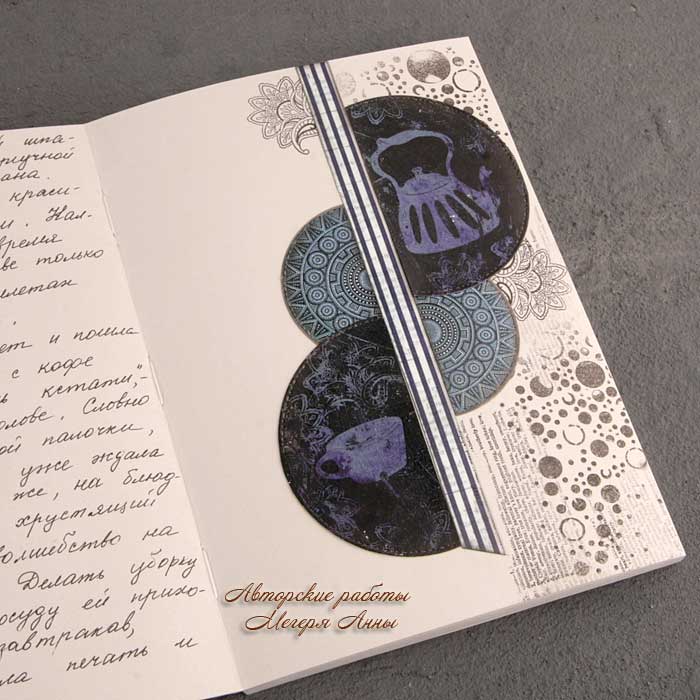 й шпа-
ртучной
ана.
краси-
и. Нал-
время
ве только
илетан
.
ет и пошла
с кофе
ь кстати",-
олове. Словно
ой палочки,
уже ждала
же, на блюд-
хрустящий
волшебство на
Делать уборку
осуду ей прихо-
завтраков,
ла печать и
Авторские работы
Мегеря Анны